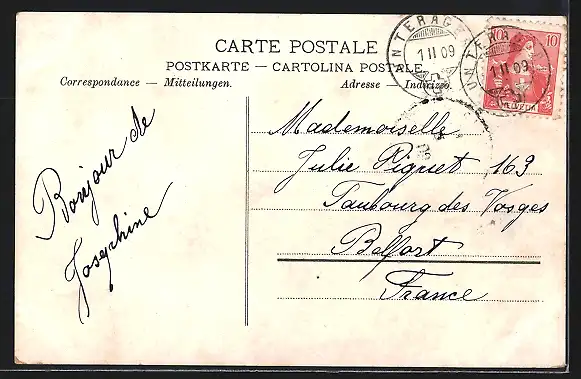 CARTE POSTALE
POSTKARTE — CARTOLINA POSTALE
Correspondance — Mitteilungen.
Adresse — Indirizzo.
UNTERAG
1 II 09
UNTERA
1 II 09
10
10
HELVETIA
Bonjour de
Josephine
Mademoiselle
Julie Piquet 163
Faubourg des Vosges
Belfort
France